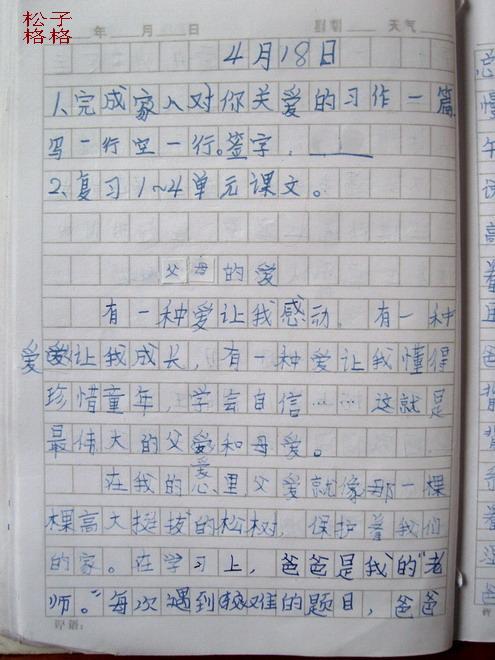 松子
格格
年 月 日 星期 天气
4月18日
1、完成家人对你关爱的习作一篇
写一行空一行。签字:
2、复习1~4单元课文。
父母的爱
有一种爱让我感动,有一种
爱让我成长,有一种爱让我懂得
珍惜童年,学会自信……这就是
最伟大的父爱和母爱。
在我的心里,父爱就像那一棵
棵高大挺拔的松树,保护着我们
的家。在学习上,爸爸是我的“老
师。”每次遇到较难的题目,爸爸
评语: